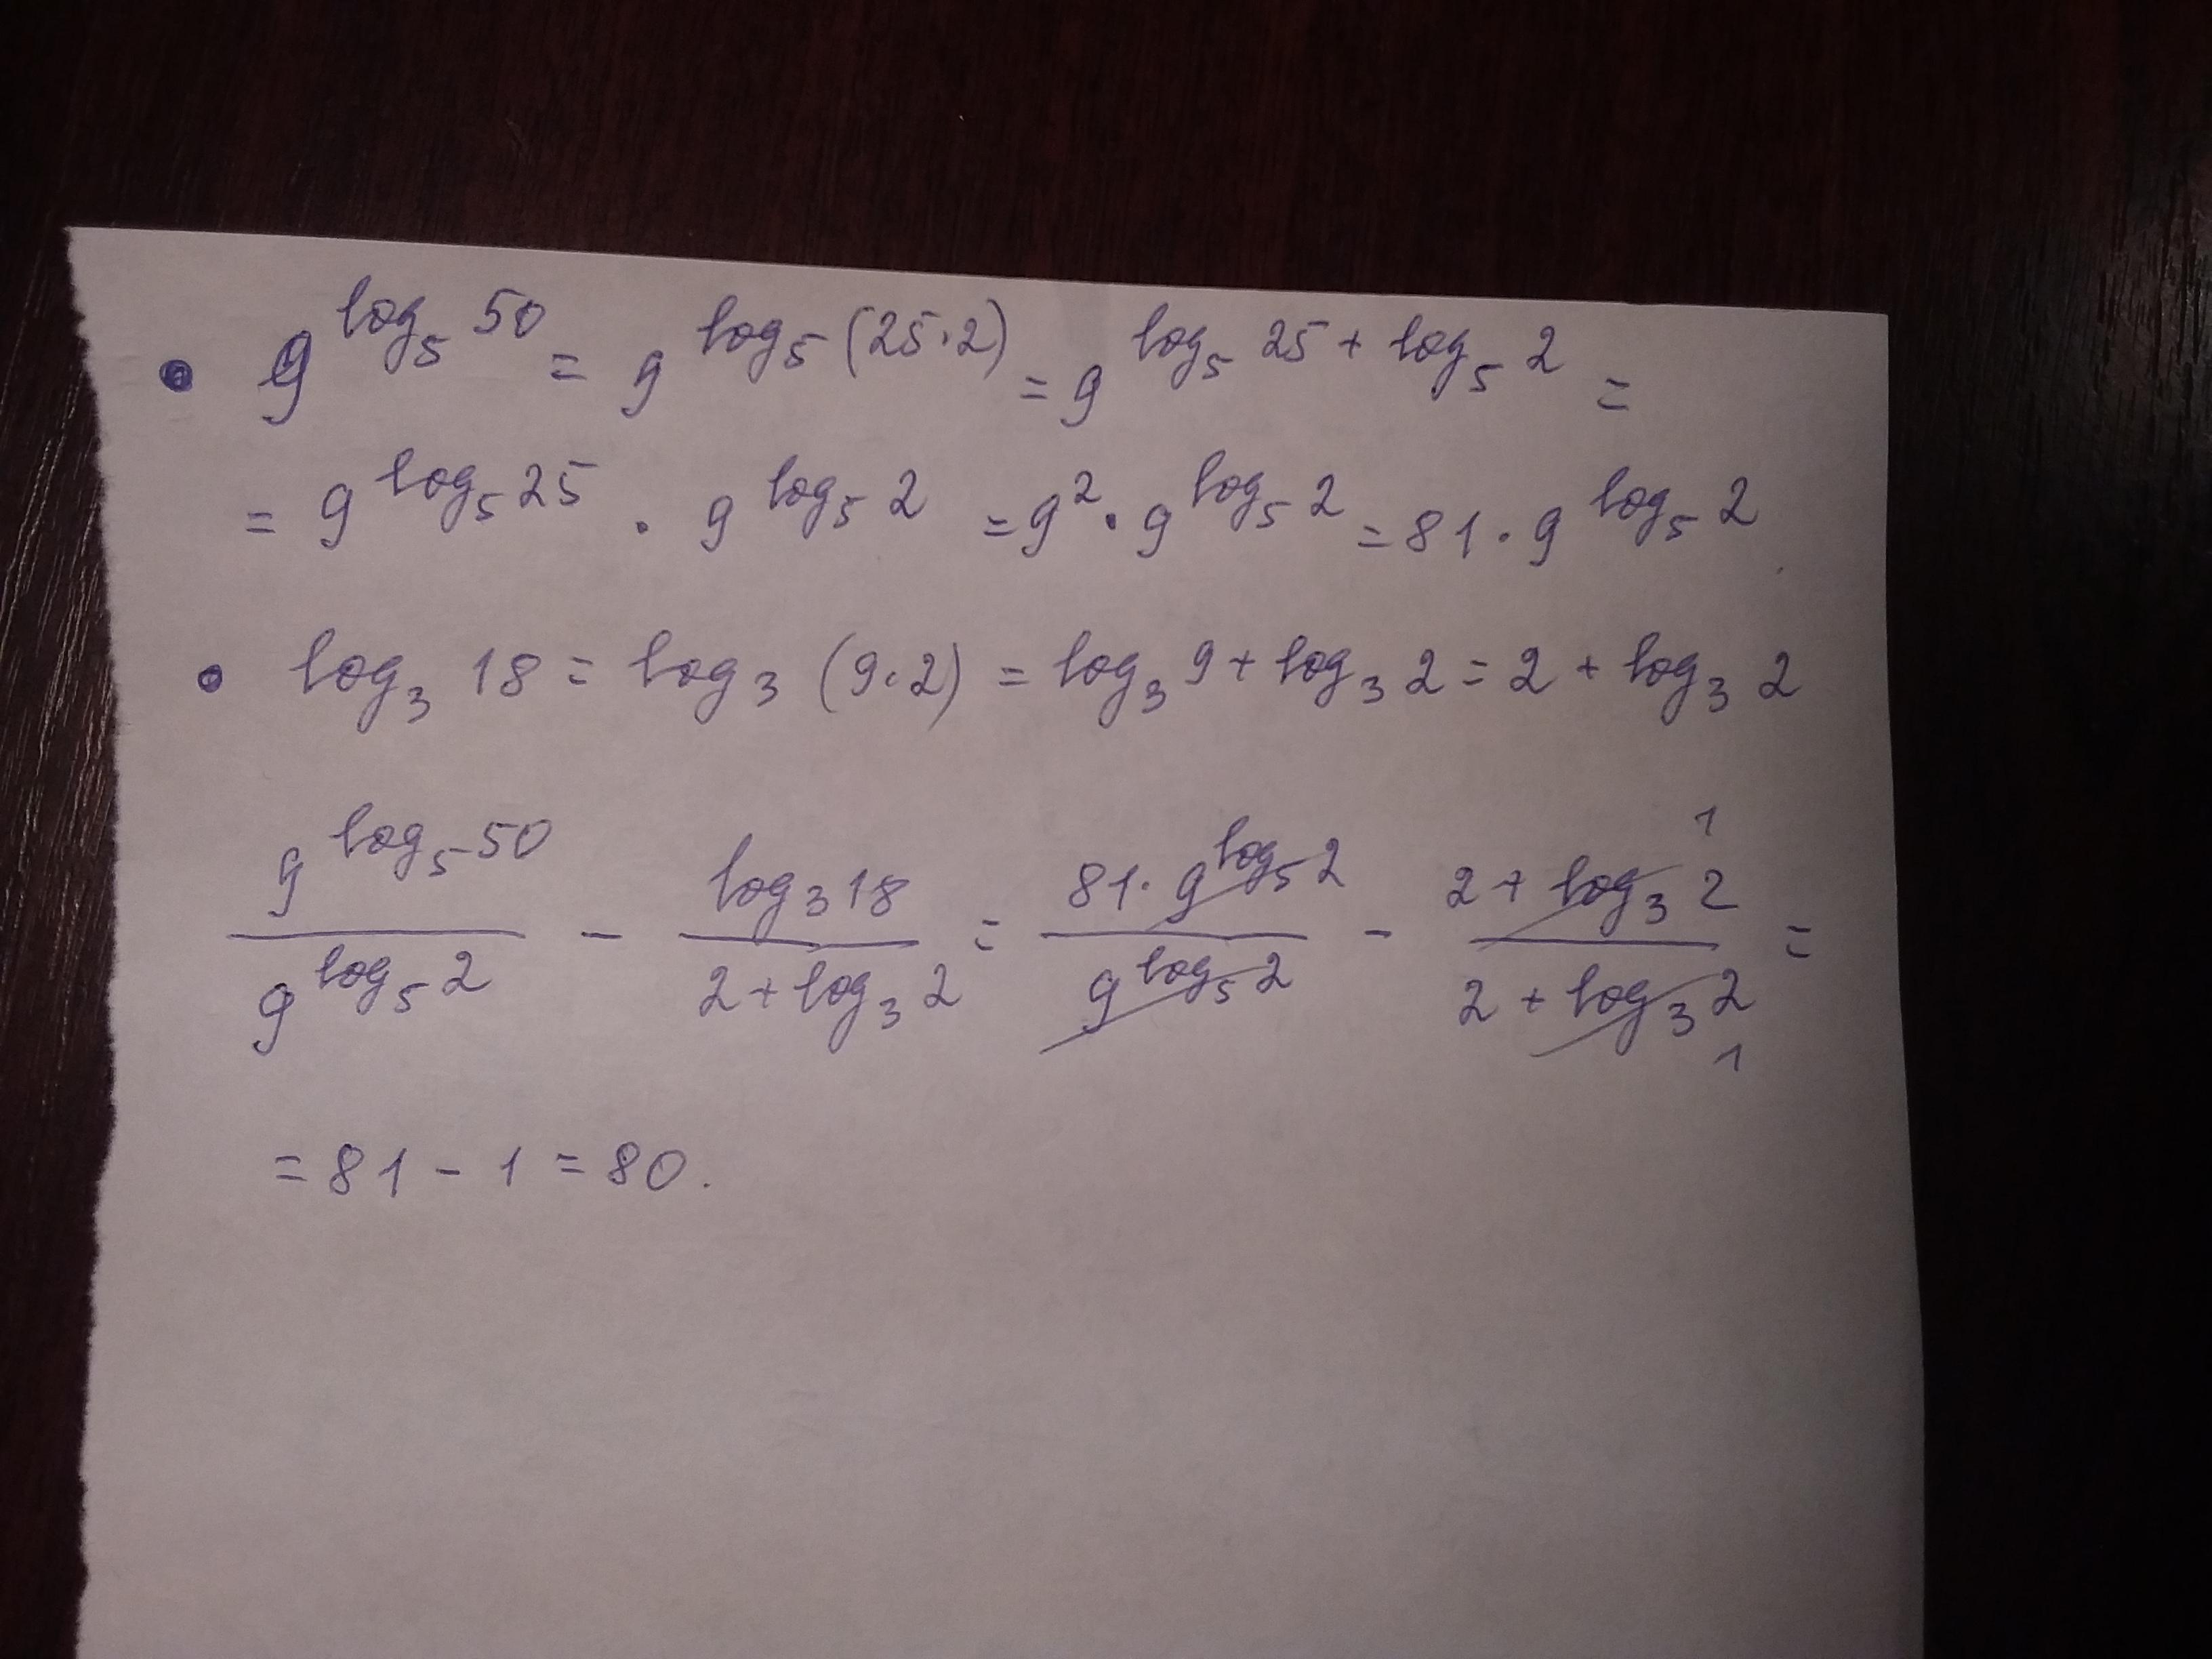 • 9^{log_5 50} = 9^{log_5 (25·2)} = 9^{log_5 25 + log_5 2} =
= 9^{log_5 25} · 9^{log_5 2} = 9^2 · 9^{log_5 2} = 81 · 9^{log_5 2}
• log_3 18 = log_3 (9·2) = log_3 9 + log_3 2 = 2 + log_3 2
\frac{9^{log_5 50}}{9^{log_5 2}} - \frac{log_3 18}{2 + log_3 2} = \frac{81 · 9^{log_5 2}}{9^{log_5 2}} - \frac{2 + log_3 2}{2 + log_3 2} \frac{1}{1} =
= 81 - 1 = 80.